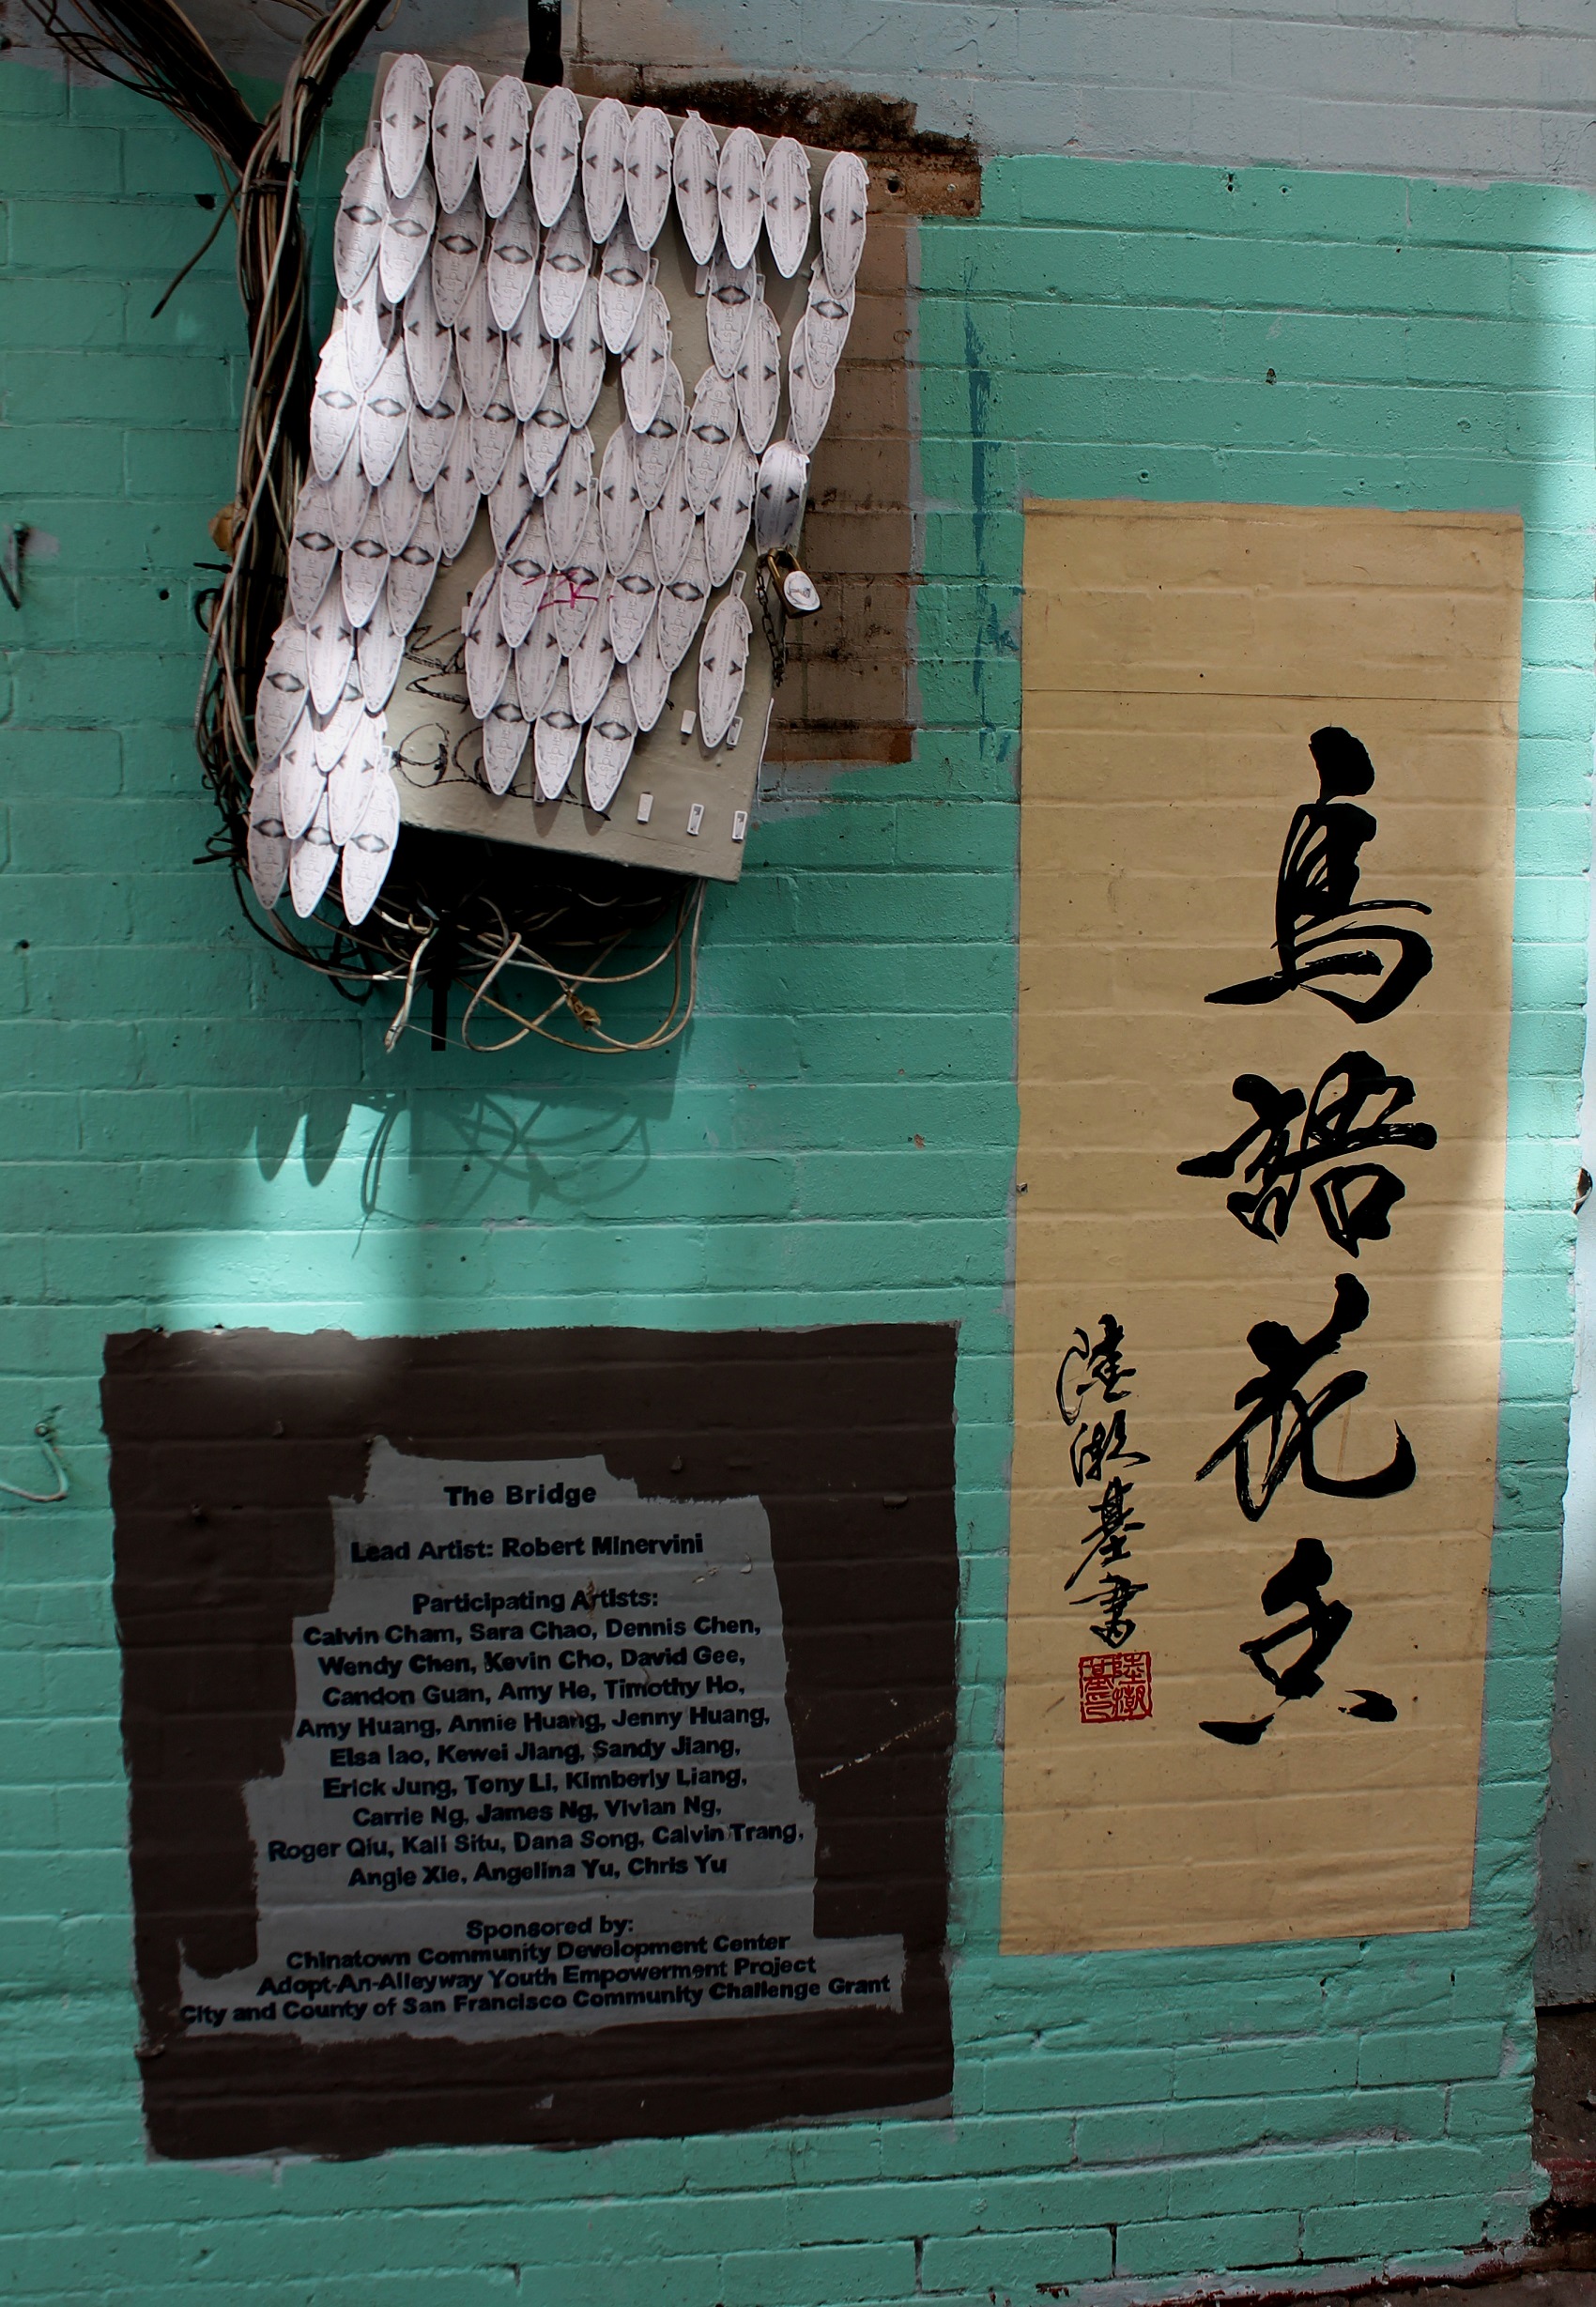 The Bridge
Lead Artist: Robert Minervini
Participating Artists:
Calvin Cham, Sara Chao, Dennis Chen,
Wendy Chen, Kevin Cho, David Gee,
Candon Guan, Amy He, Timothy Ho,
Amy Huang, Annie Huang, Jenny Huang,
Elsa Iao, Kewei Jiang, Sandy Jiang,
Erick Jung, Tony Li, Kimberly Liang,
Carrie Ng, James Ng, Vivian Ng,
Roger Qiu, Kali Situ, Dana Song, Calvin Trang,
Angie Xie, Angelina Yu, Chris Yu
Sponsored by:
Chinatown Community Development Center
Adopt-An-Alleyway Youth Empowerment Project
City and County of San Francisco Community Challenge Grant
鳥語花香
陸潮基書